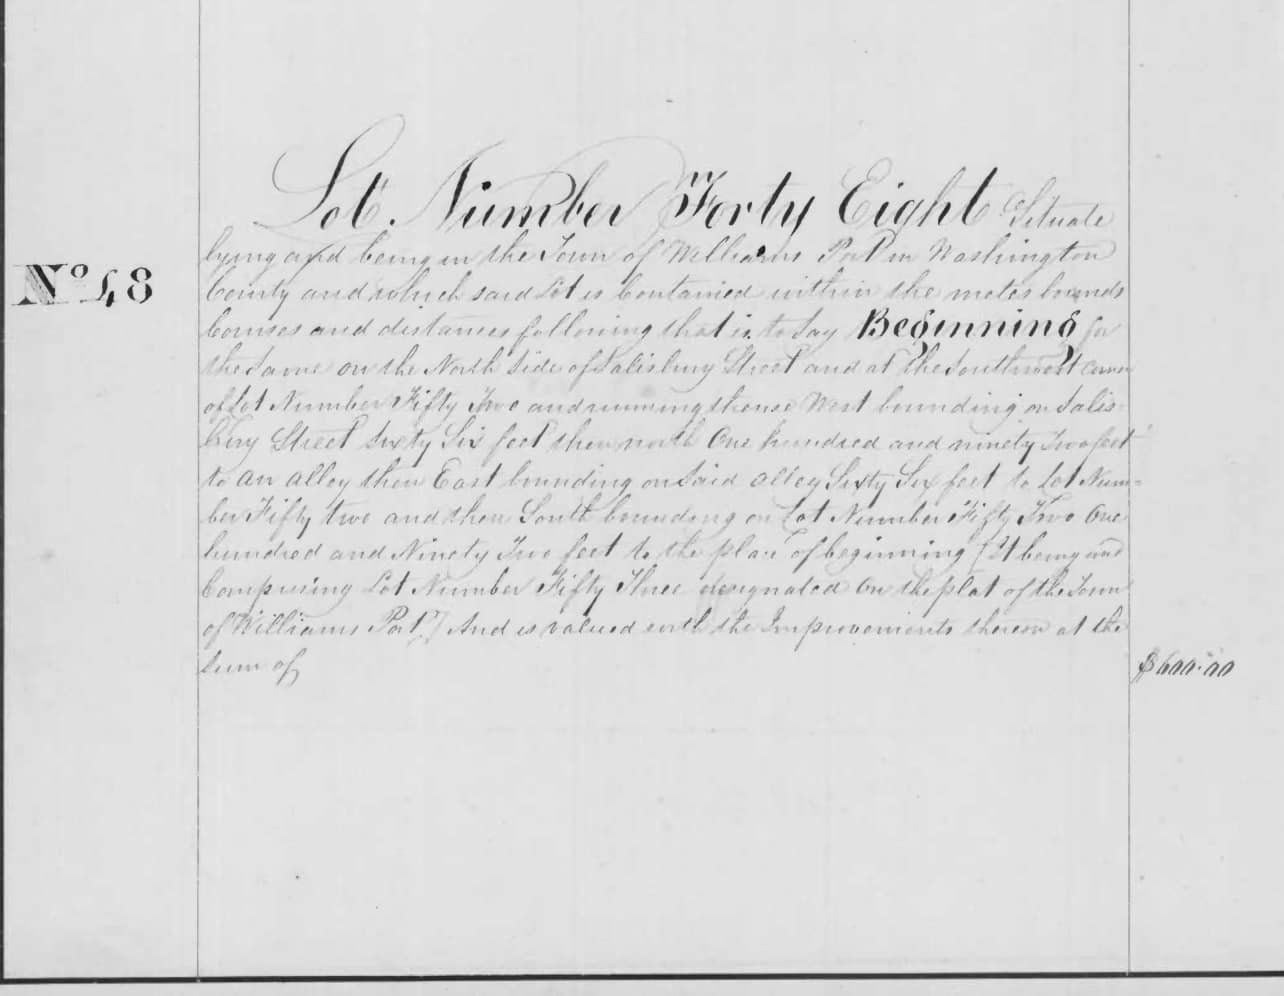 Lot. Number Forty Eight Situate
lying and being in the Town of Williams Port in Washington
No 48
County and which said Lot is Contained within the metes bounds
Courses and distances following that is to say Beginning for
the same on the North side of Salisbury Street and at the Southwest corner
of Lot Number Fifty Two and running thence West bounding on Salis-
bury Street Sixty Six feet then north One hundred and ninety Two feet
to an alley then East bounding on said alley Sixty Six feet to Lot Num=
ber Fifty two and then South bounding on Lot Number Fifty Two One
hundred and Ninety Two feet to the place of beginning [It being and
Comprising Lot Number Fifty Three designated on the plat of the Town
of Williams Port] And is valued with the Improvements thereon at the
sum of
$600.00